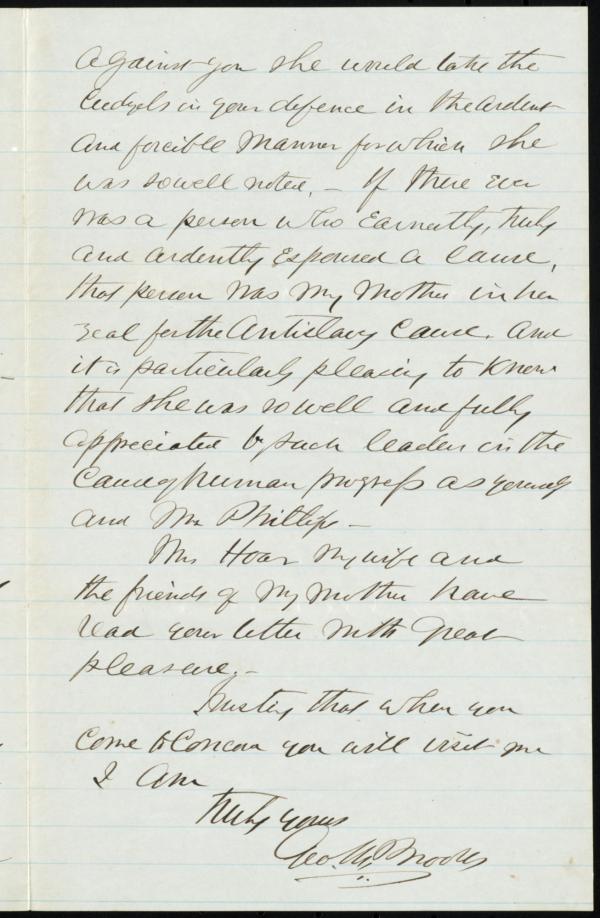 against you she would take the
cudgels in your defence in the ardent
and forcible manner for which she
was so well noted, – If there ever
was a person who earnestly, truly
and ardently espoused a cause,
that person was my mother in her
zeal for the Antislavery cause. and
it is particularly pleasing to know
that she was so well and fully
appreciated by such leaders in the
cause of human progress as yourself
and Mr Phillips –
Mrs Hoar my wife and
the friends of my mother have
read your letter with great
pleasure, –
Trusting that when you
come to Concord you will visit me
I am
truly yours
Geo. M. Brooks